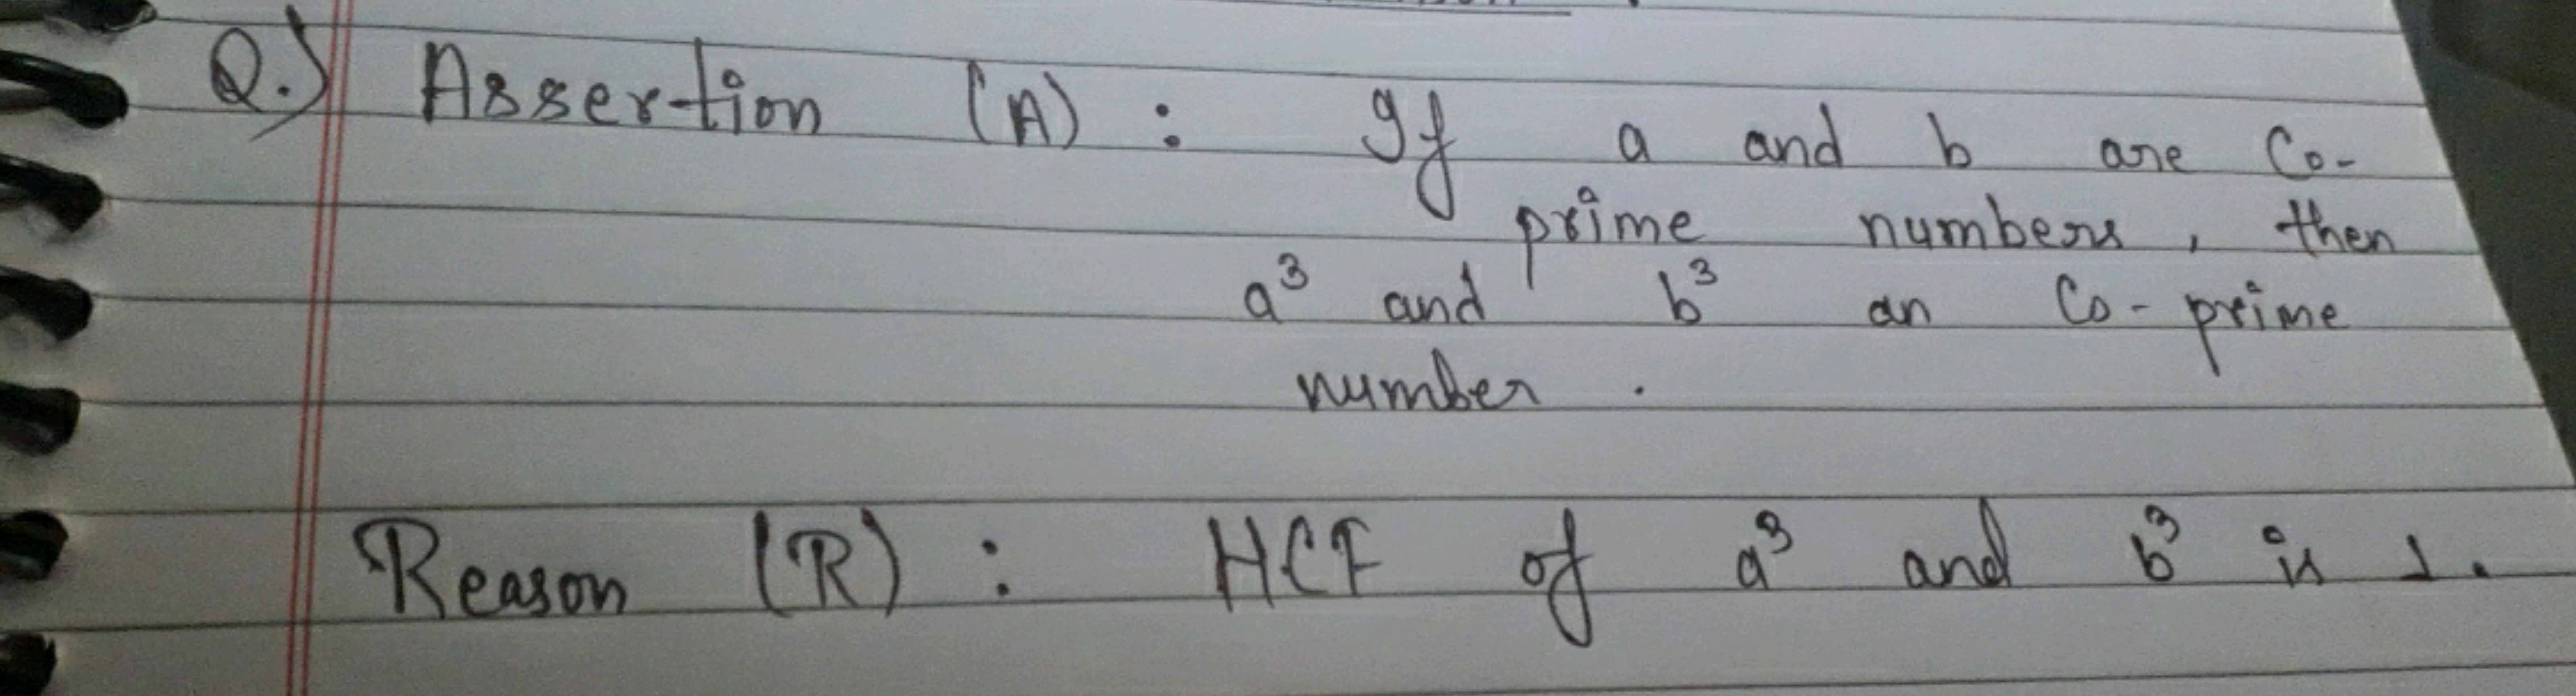 Q.) Assertion (A) : If a and b are Co-
prime numbers, then
a³ and b³ an Co-prime
number.
Reason (R) : HCF of a³ and b³ is 1.